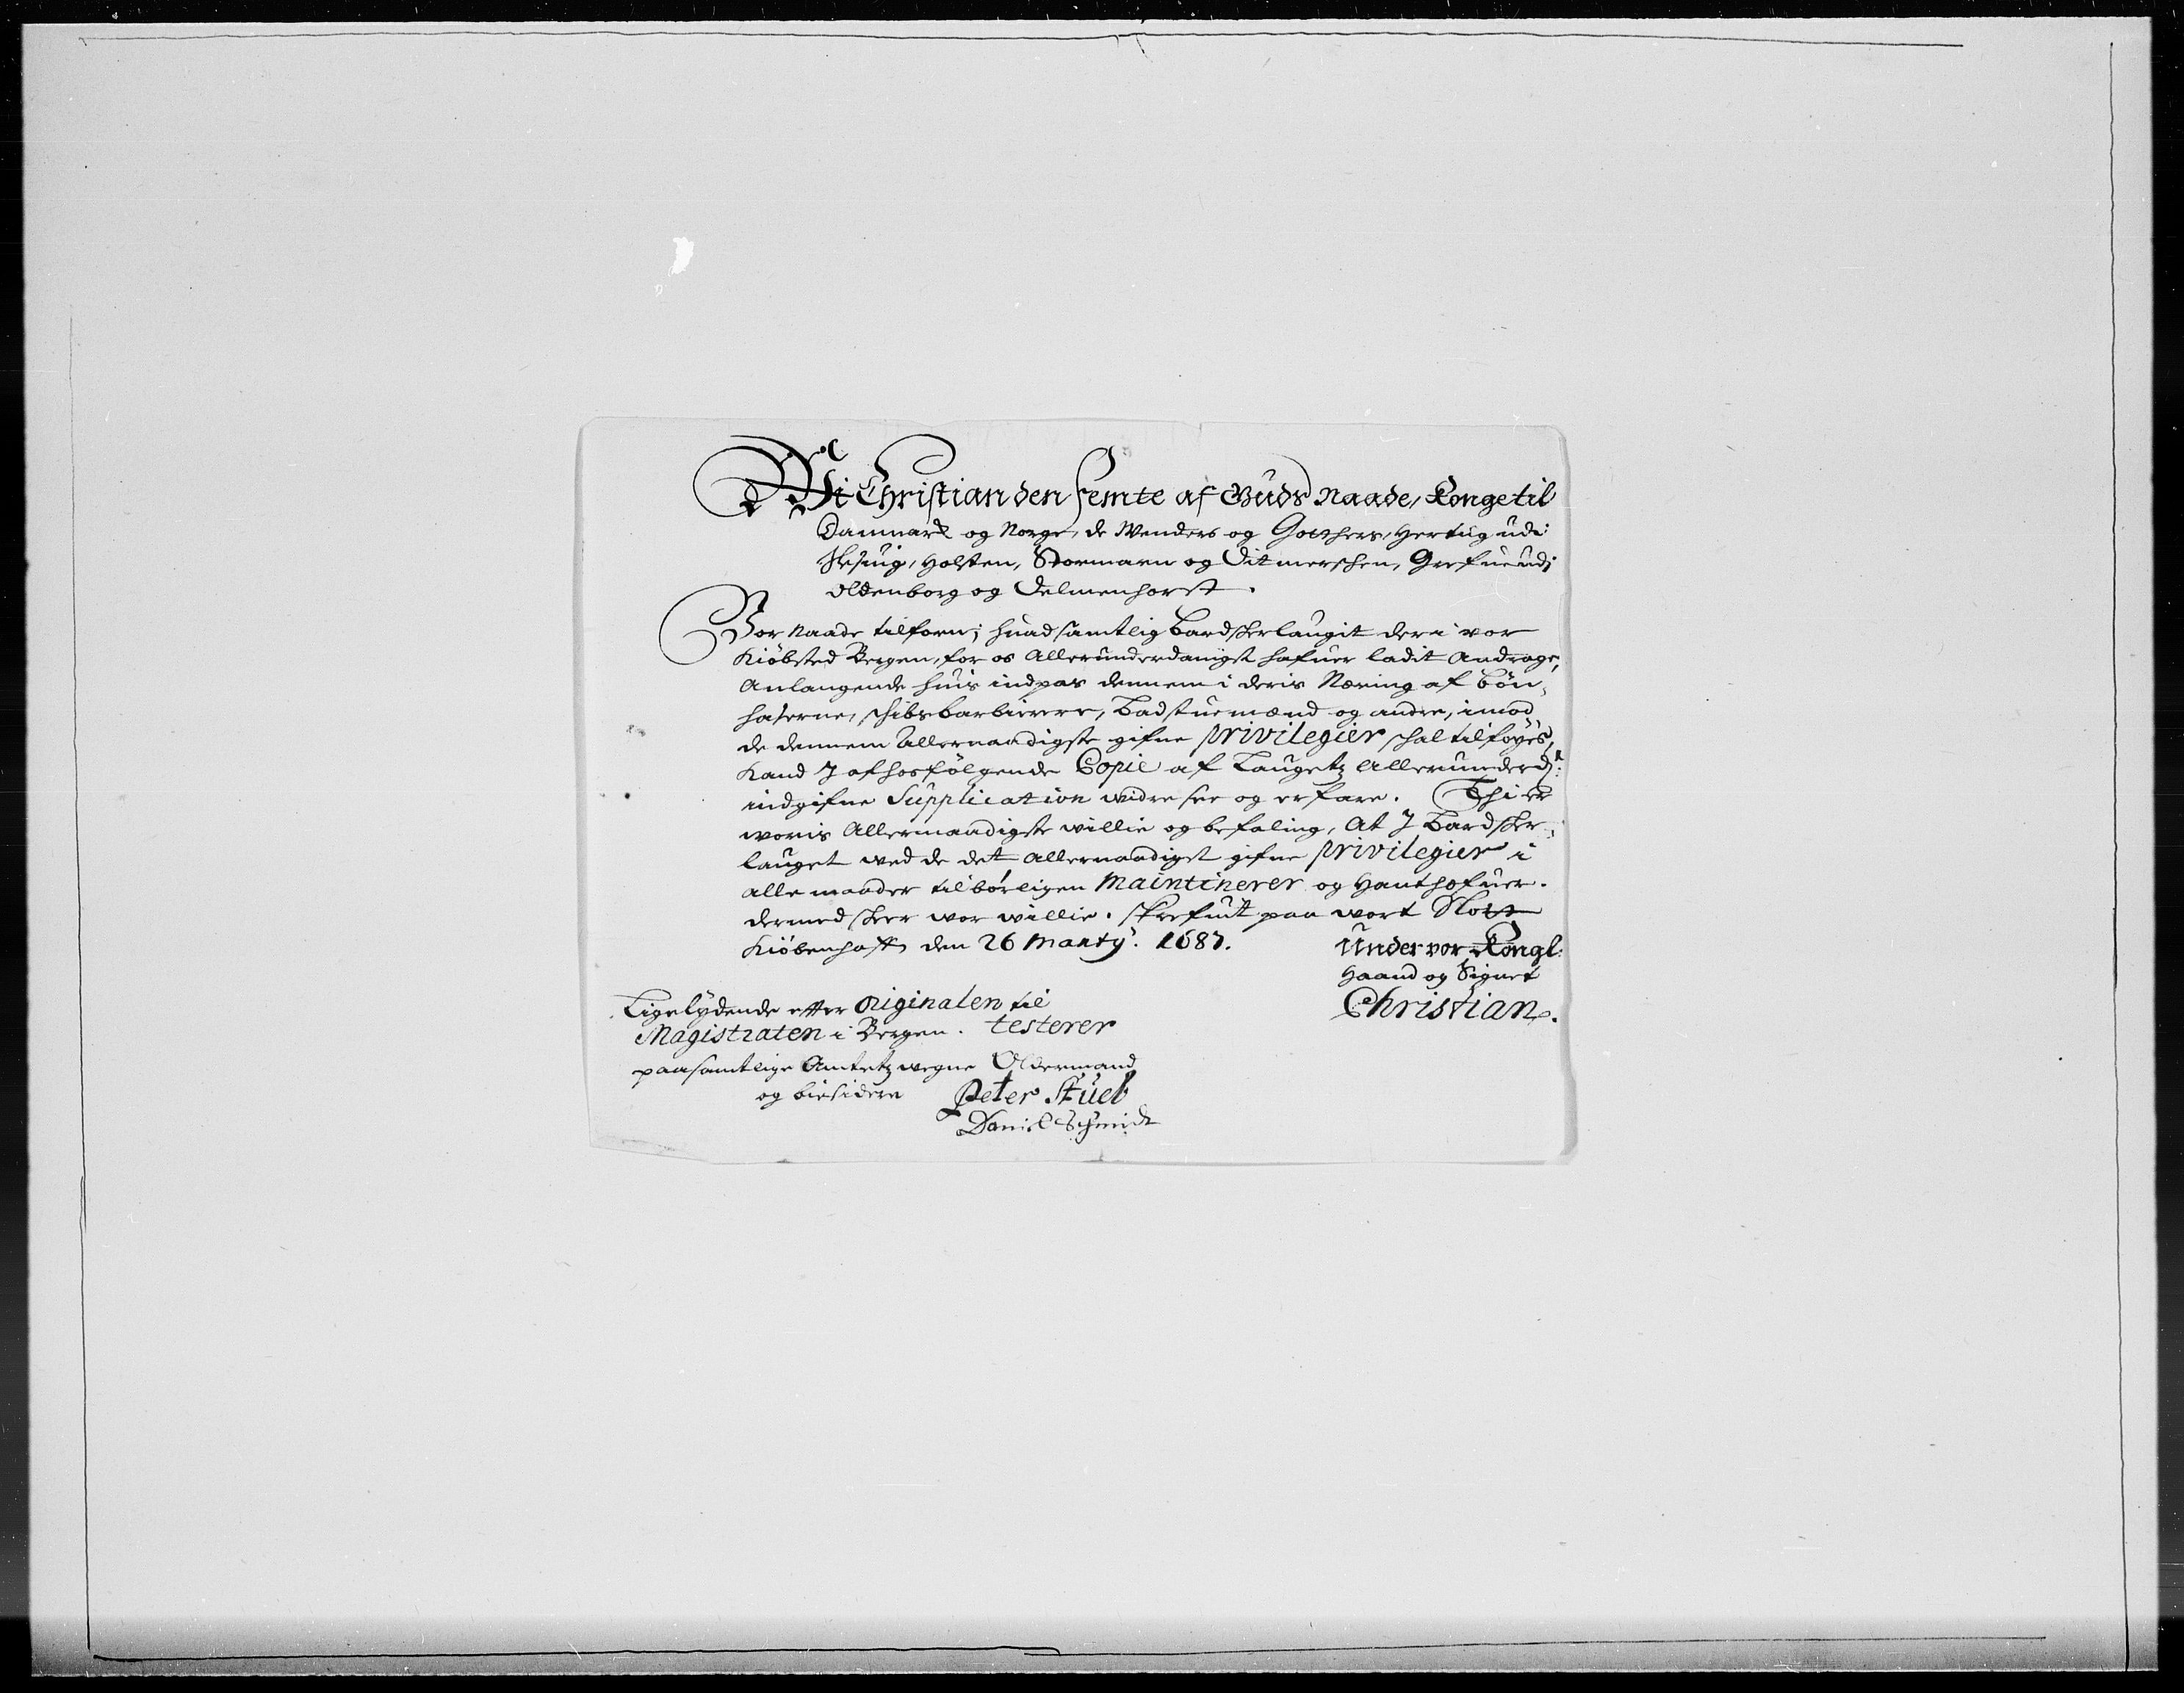 Wi Christian den Femte af Guds Naade, Konge til
Danmark og Norge, de Wenders og Gothers, Hertug udi
Slesuig, Holsten, Stormarn og Ditmerschen, Grefue udi
Oldenborg og Delmenhorst.
Vor Naade tilforn; huad samtlig Bardskerlaugit der i vor
Kiöbsted Bergen, for os Allerunderdanigst hafuer ladit Andrage,
Anlangende huis indpas dennem i deris Næring af Bön-
haserne, schibsbarbierere, Badstuemænd og andre, imod
de dennem Allernaadigste gifne privilegier schal tilföyes,
Kand J af hosfölgende Copie af Laugetz Allerunderdst:
indgifne Supplication widre see og erfare. Thi er
woris Allernaadigste willie og befaling, At J Bardsker-
lauget wed de det Allernaadigst gifne privilegier i
alle maader tilbörligen Maintinerer og Hanthefuer.
dermed skeer wor willie. Skrefuit paa wort Slot
Kiöbenhafn den 26 Marty. 1687.
Under vor Kongl:
Haand og Signet
Christian.
Ligelydende effter Originalen til
Magistraten i Bergen. testerer
paa samtlige Amtetz wegne Oldermand
og biesidere Peter Stüeb
Daniel Schmidt